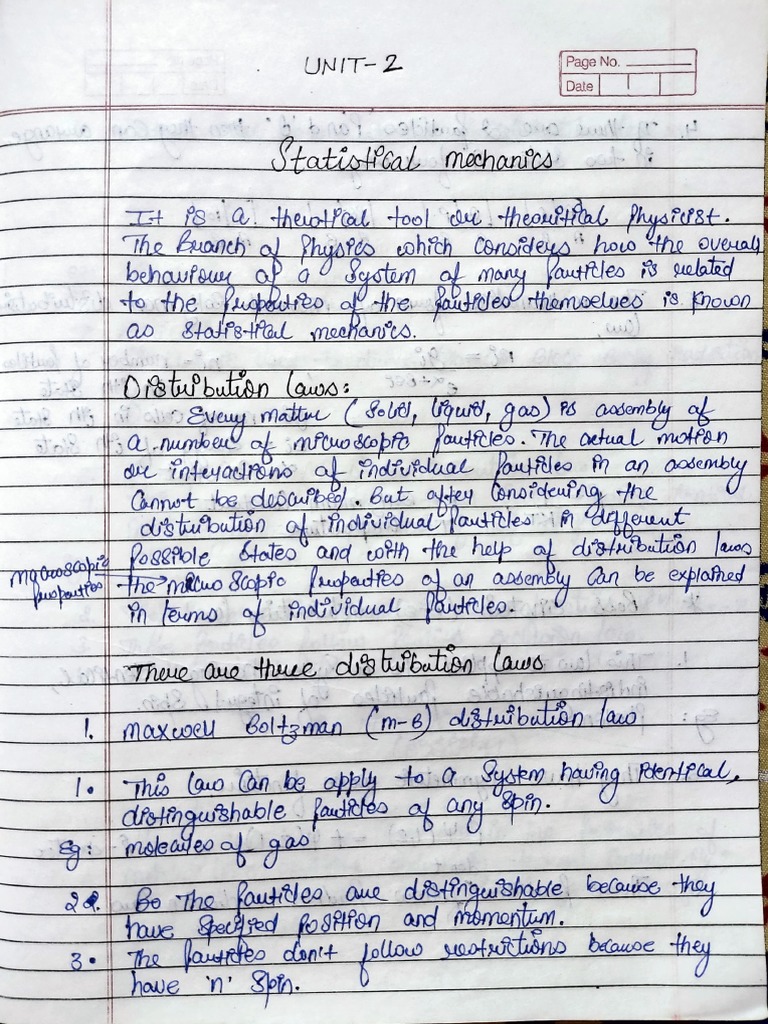 UNIT-2
Page No.
Date
Statistical mechanics
It is a theotical tool or theoritical Physicist.
The Branch of Physics which considers how the overall
behaviour of a System of many particles is related
to the Properties of the particles themselves is known
as statistical mechanics.
Distribution laws:
Every matter (solid, liquid, gas) is assembly of
a number of microscopic particles. The actual motion
or interactions of individual particles in an assembly
Cannot be described. But after Considering the
distribution of individual particles in different
Possible States and with the help of distribution laws
macroscopic properties
the macroscopic Properties of an assembly Can be explained
in terms of individual particles.
There are three distribution laws
1. maxwell Boltzman (m-B) distribution law
1. This law Can be apply to a System having identical,
distinguishable particles of any spin.
Eg: molecules of gas
2. The particles are distinguishable because they
have Specified Position and momentum.
3. The particles don't follow restrictions because they
have 'n' Spin.